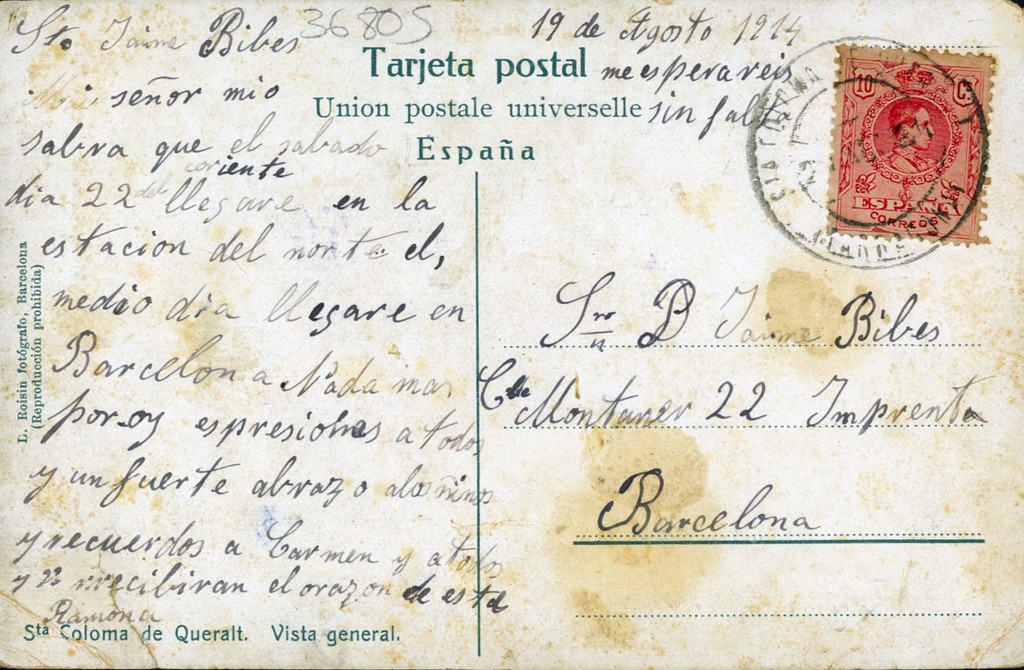 36805
19 de Agosto 1914
Sto Jaime Bibes
Tarjeta postal
me esperareis
Mui señor mio
Union postale universelle
sin falta
sabra que el sabado
España
dia 22 del coriente llegare en la
estacion del norte el,
medio dia llegare en
Barcelona Nada mas
por-oy espresiones a todos
y un fuerte abrazo alos niños
y recuerdos a Carmen y a todos
recibiran el orazon de esta
Ramona
Sta Coloma de Queralt. Vista general.
L. Roisin fotógrafo, Barcelona
(Reproducción prohibida)
10 Cs
ESPAÑA
CORREOS
Jaime Bibes
Clle Montaner 22 Imprenta
Barcelona